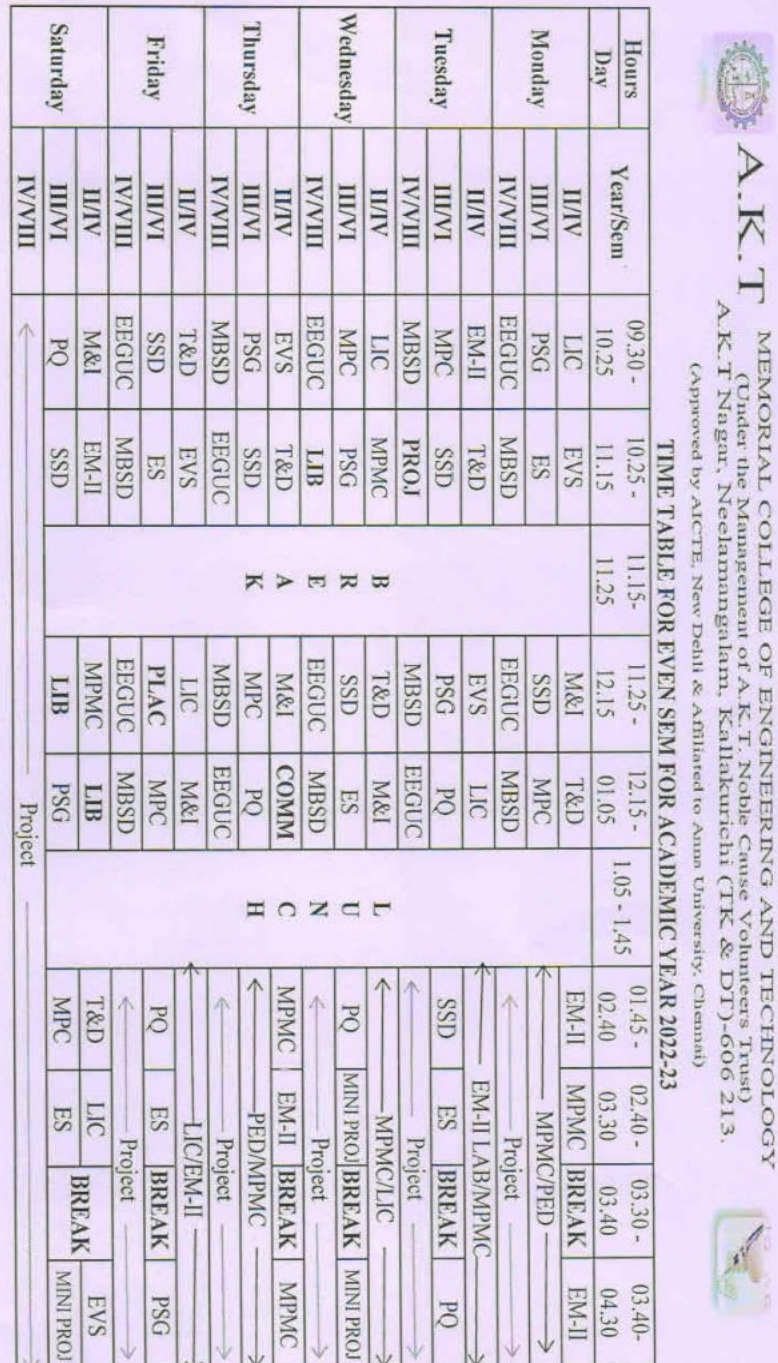 A.K.T MEMORIAL COLLEGE OF ENGINEERING AND TECHNOLOGY
(Under the Management of A.K.T. Noble Cause Volunteers Trust)
A.K.T Nagar, Neelamangalam, Kallakurichi (TK & DT)-606 213.
(Approved by AICTE, New Dehli & Affiliated to Anna University, Chennai)
TIME TABLE FOR EVEN SEM FOR ACADEMIC YEAR 2022-23
Hours Day Year/Sem 09.30 - 10.25 10.25 - 11.15 11.15- 11.25 11.25 - 12.15 12.15 - 01.05 1.05 - 1.45 01.45 - 02.40 02.40 - 03.30 03.30 - 03.40 03.40- 04.30
Monday II/IV LIC EVS M&I T&D EM-II MPMC BREAK EM-II
III/VI PSG ES SSD MPC MPMC/PED
IV/VIII EEGUC MBSD EEGUC MBSD Project
Tuesday II/IV EM-II T&D EVS LIC EM-II LAB/MPMC
III/VI MPC SSD PSG PQ SSD ES BREAK PQ
IV/VIII MBSD PROJ MBSD EEGUC Project
Wednesday II/IV LIC MPMC B T&D M&I L MPMC/LIC
III/VI MPC PSG R SSD ES U PQ MINI PROJ BREAK MINI PROJ
IV/VIII EEGUC LIB E EEGUC MBSD N Project
Thursday II/IV EVS T&D A M&I COMM C MPMC EM-II BREAK MPMC
III/VI PSG SSD K MPC PQ H PED/MPMC
IV/VIII MBSD EEGUC MBSD EEGUC Project
Friday II/IV T&D EVS LIC M&I LIC/EM-II
III/VI SSD ES PLAC MPC PQ ES BREAK PSG
IV/VIII EEGUC MBSD EEGUC MBSD Project
Saturday II/IV M&I EM-II MPMC LIB T&D LIC BREAK EVS
III/VI PQ SSD LIB PSG MPC ES MINI PROJ
IV/VIII Project